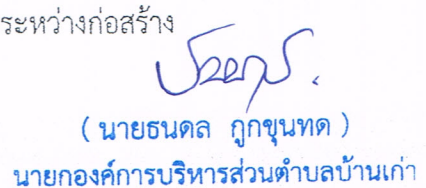 ระหว่างก่อสร้าง
( นายธนดล ถูกขุนทด )
นายกองค์การบริหารส่วนตำบลบ้านเก่า